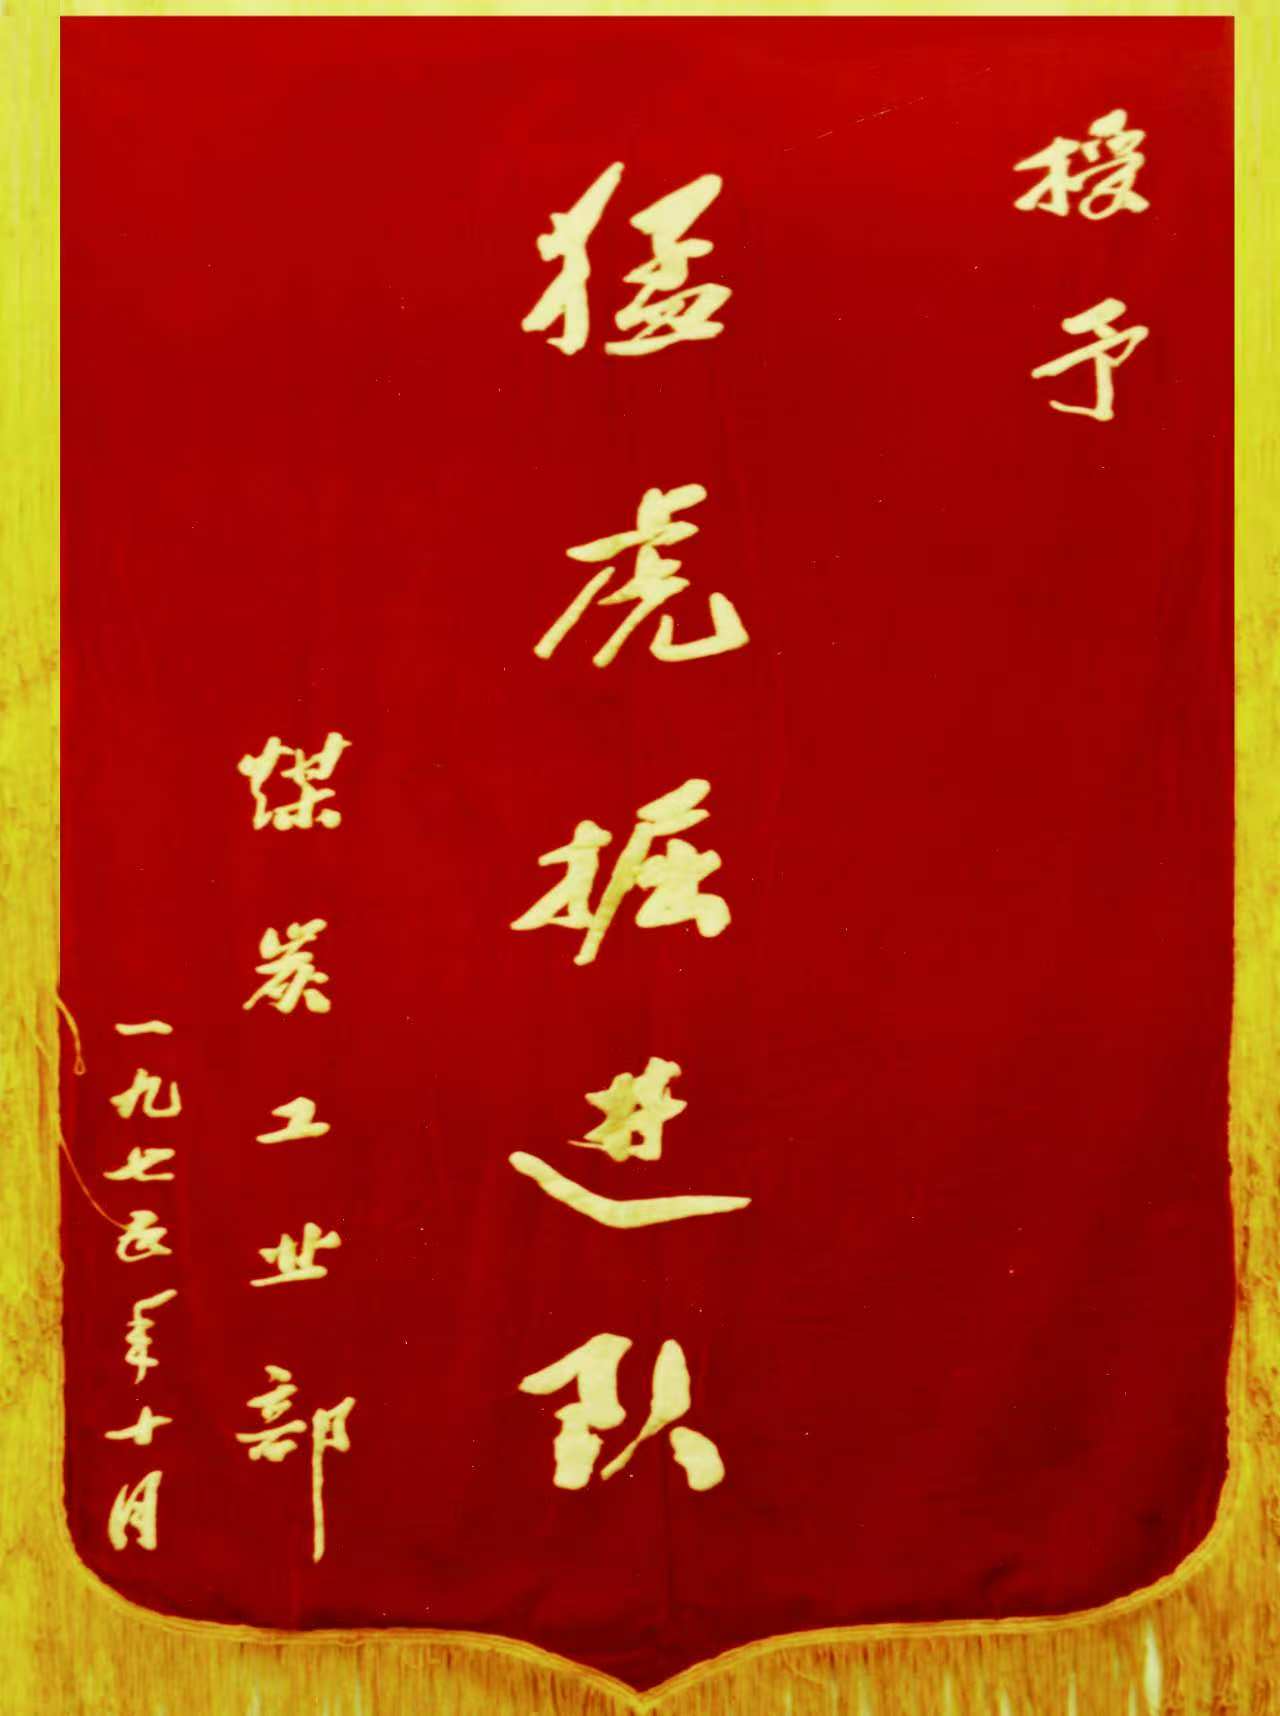 授予
猛虎掘进队
煤炭工业部
一九七五年十月